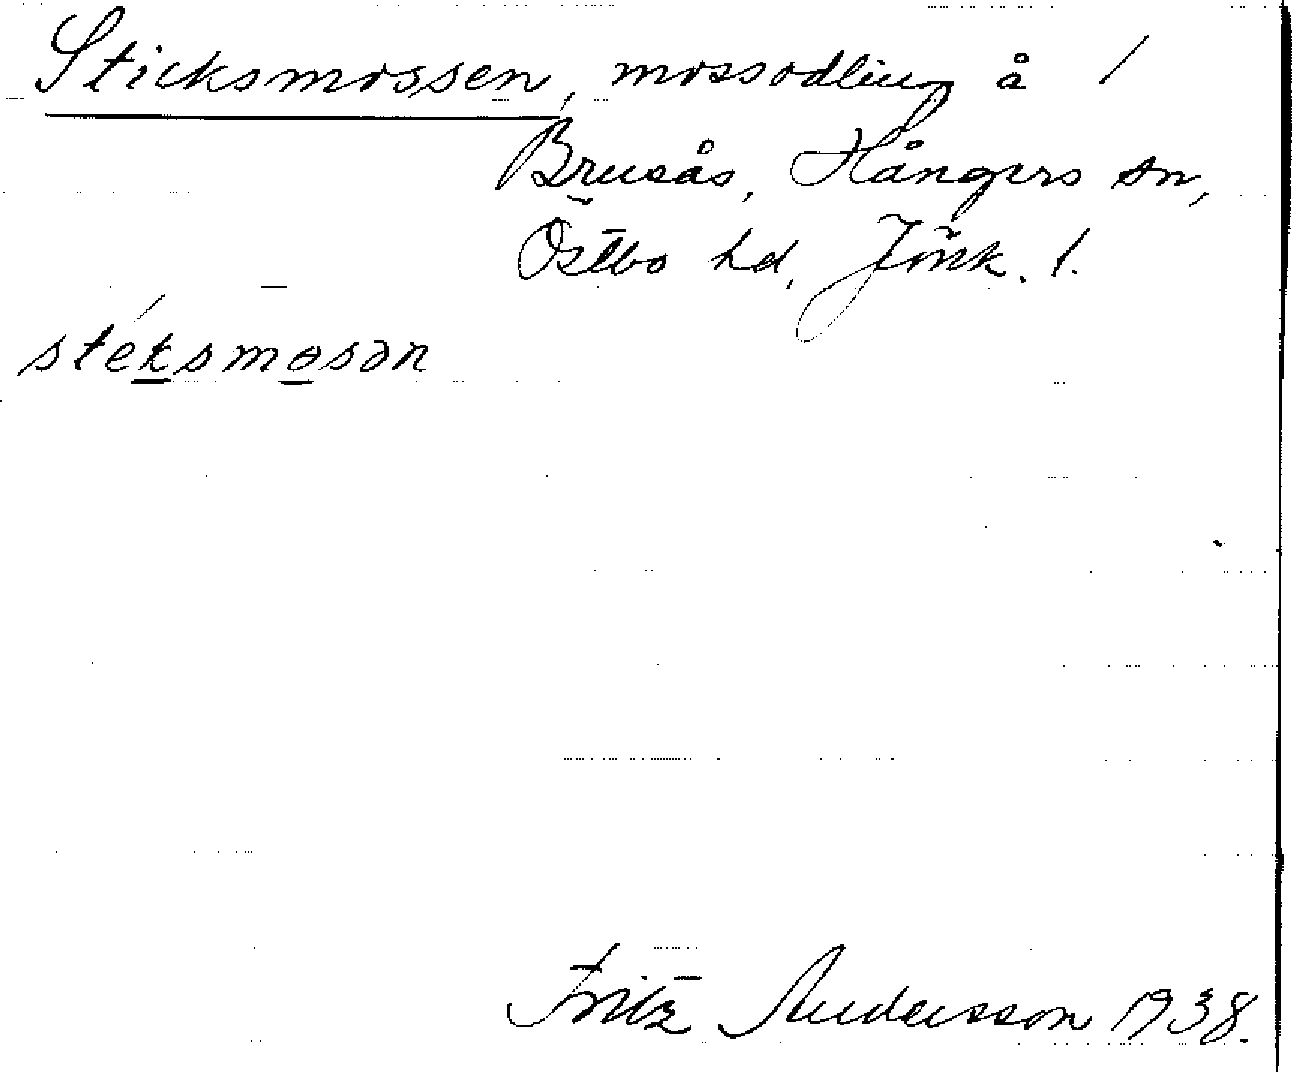 Sticksmossen, mossodling å /
Brusås, Hångers sn,
Östbo hd, Jönk. l.
stéksmosən
Fritz Andersson 1938.